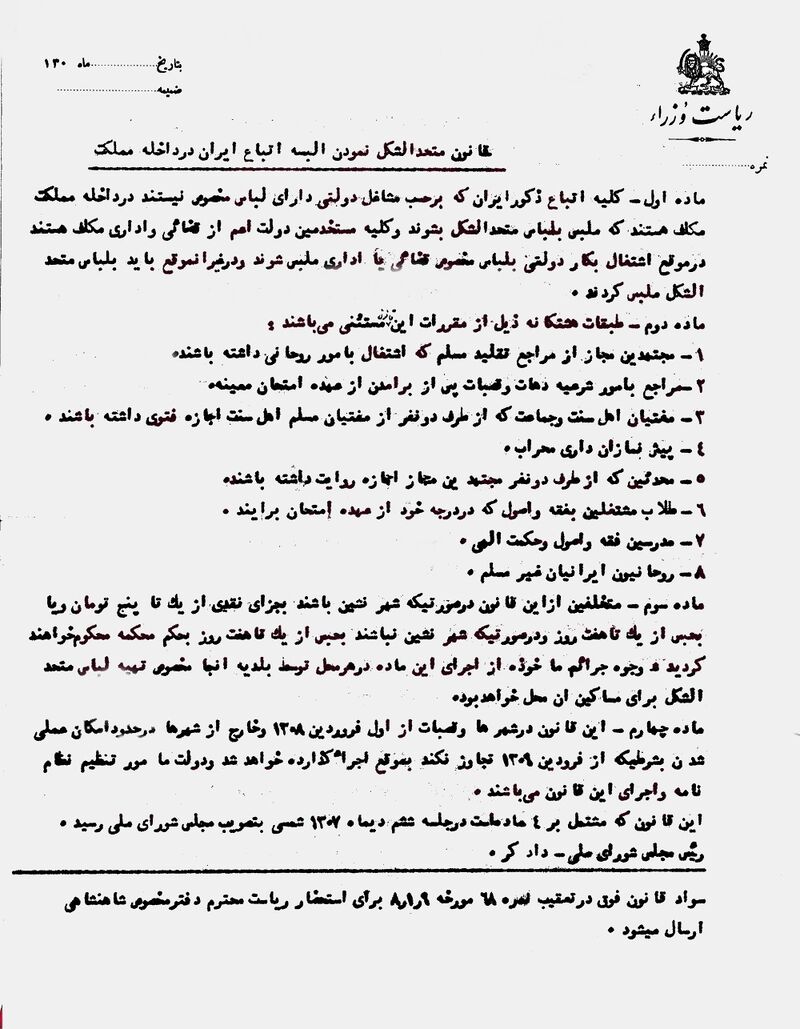 ریاست وزراء
بتاریخ ........ ماه ۱۳۰
ضمیمه ........
نمره ........
قانون متحدالشکل نمودن البسه اتباع ایران در داخله مملکت
ماده اول – کلیه اتباع ذکور ایران که برحسب مشاغل دولتی دارای لباس مخصوص نیستند در داخله مملکت
مکلف هستند که ملبس بلباس متحدالشکل بشوند و کلیه مستخدمین دولت اعم از قضائی و اداری مکلف هستند
درموقع اشتغال بکار دولتی بلباس مخصوص قضائی یا اداری ملبس شوند و درغیر انموقع باید بلباس متحد
الشکل ملبس گردند .
ماده دوم – طبقات هشتگانه ذیل از مقررات این قانون مستثنی می‌باشند :
۱ – مجتهدین مجاز از مراجع تقلید مسلم که اشتغال بامور روحانی داشته باشند.
۲ – مراجع بامور شرعیه دهات وقصبات پس از برامدن از عهده امتحان معینه.
۳ – مفتیان اهل سنت وجماعت که از طرف دونفر از مفتیان مسلم اهل سنت اجازه فتوی داشته باشند .
٤ – پیش نمازان داری محراب .
۵ – محدثین که از طرف دونفر مجتهدین مجاز اجازه روایت داشته باشند.
٦ – طلاب مشتغلین بفقه واصول که دردرجه خود از عهده امتحان برایند .
۷ – مدرسین فقه واصول وحکمت الهی .
۸ – روحانیون ایرانیان غیر مسلم .
ماده سوم – متخلفین ازاین قانون درصورتیکه شهر نشین باشند بجزای نقدی از یك تا پنج تومان ویا
بحبس از یك تا هفت روز ودرصورتیکه شهر نشین نباشند بحبس از یك تا هفت روز بحکم محکمه محکوم خواهند
گردید . وجوه جرائم ماخوذه از اجرای این ماده درهرمحل توسط بلدیه انجا مخصوص تهیه لباس متحد
الشکل برای مساکین ان محل خواهدبود.
ماده چهارم – این قانون درشهر ها وقصبات از اول فروردین ۱۳۰۸ وخارج از شهرها درحدود امکان عملی
شدن بشرطیکه از فرودین ۱۳۰۹ تجاوز نکند بموقع اجرا گذارده خواهد شد ودولت مامور تنظیم نظام
نامه واجرای این قانون می‌باشند .
این قانون که مشتمل بر ٤ ماده است درجلسه ششم دیماه ۱۳۰۷ شمسی بتصویب مجلس شورای ملی رسید .
رئیس مجلس شورای ملی – دادگر .
سواد قانون فوق درتعقیب نمره ٦۸ مورخه ۸٫۱٫۹ برای استحضار ریاست محترم دفتر مخصوص شاهنشاهی
ارسال میشود .